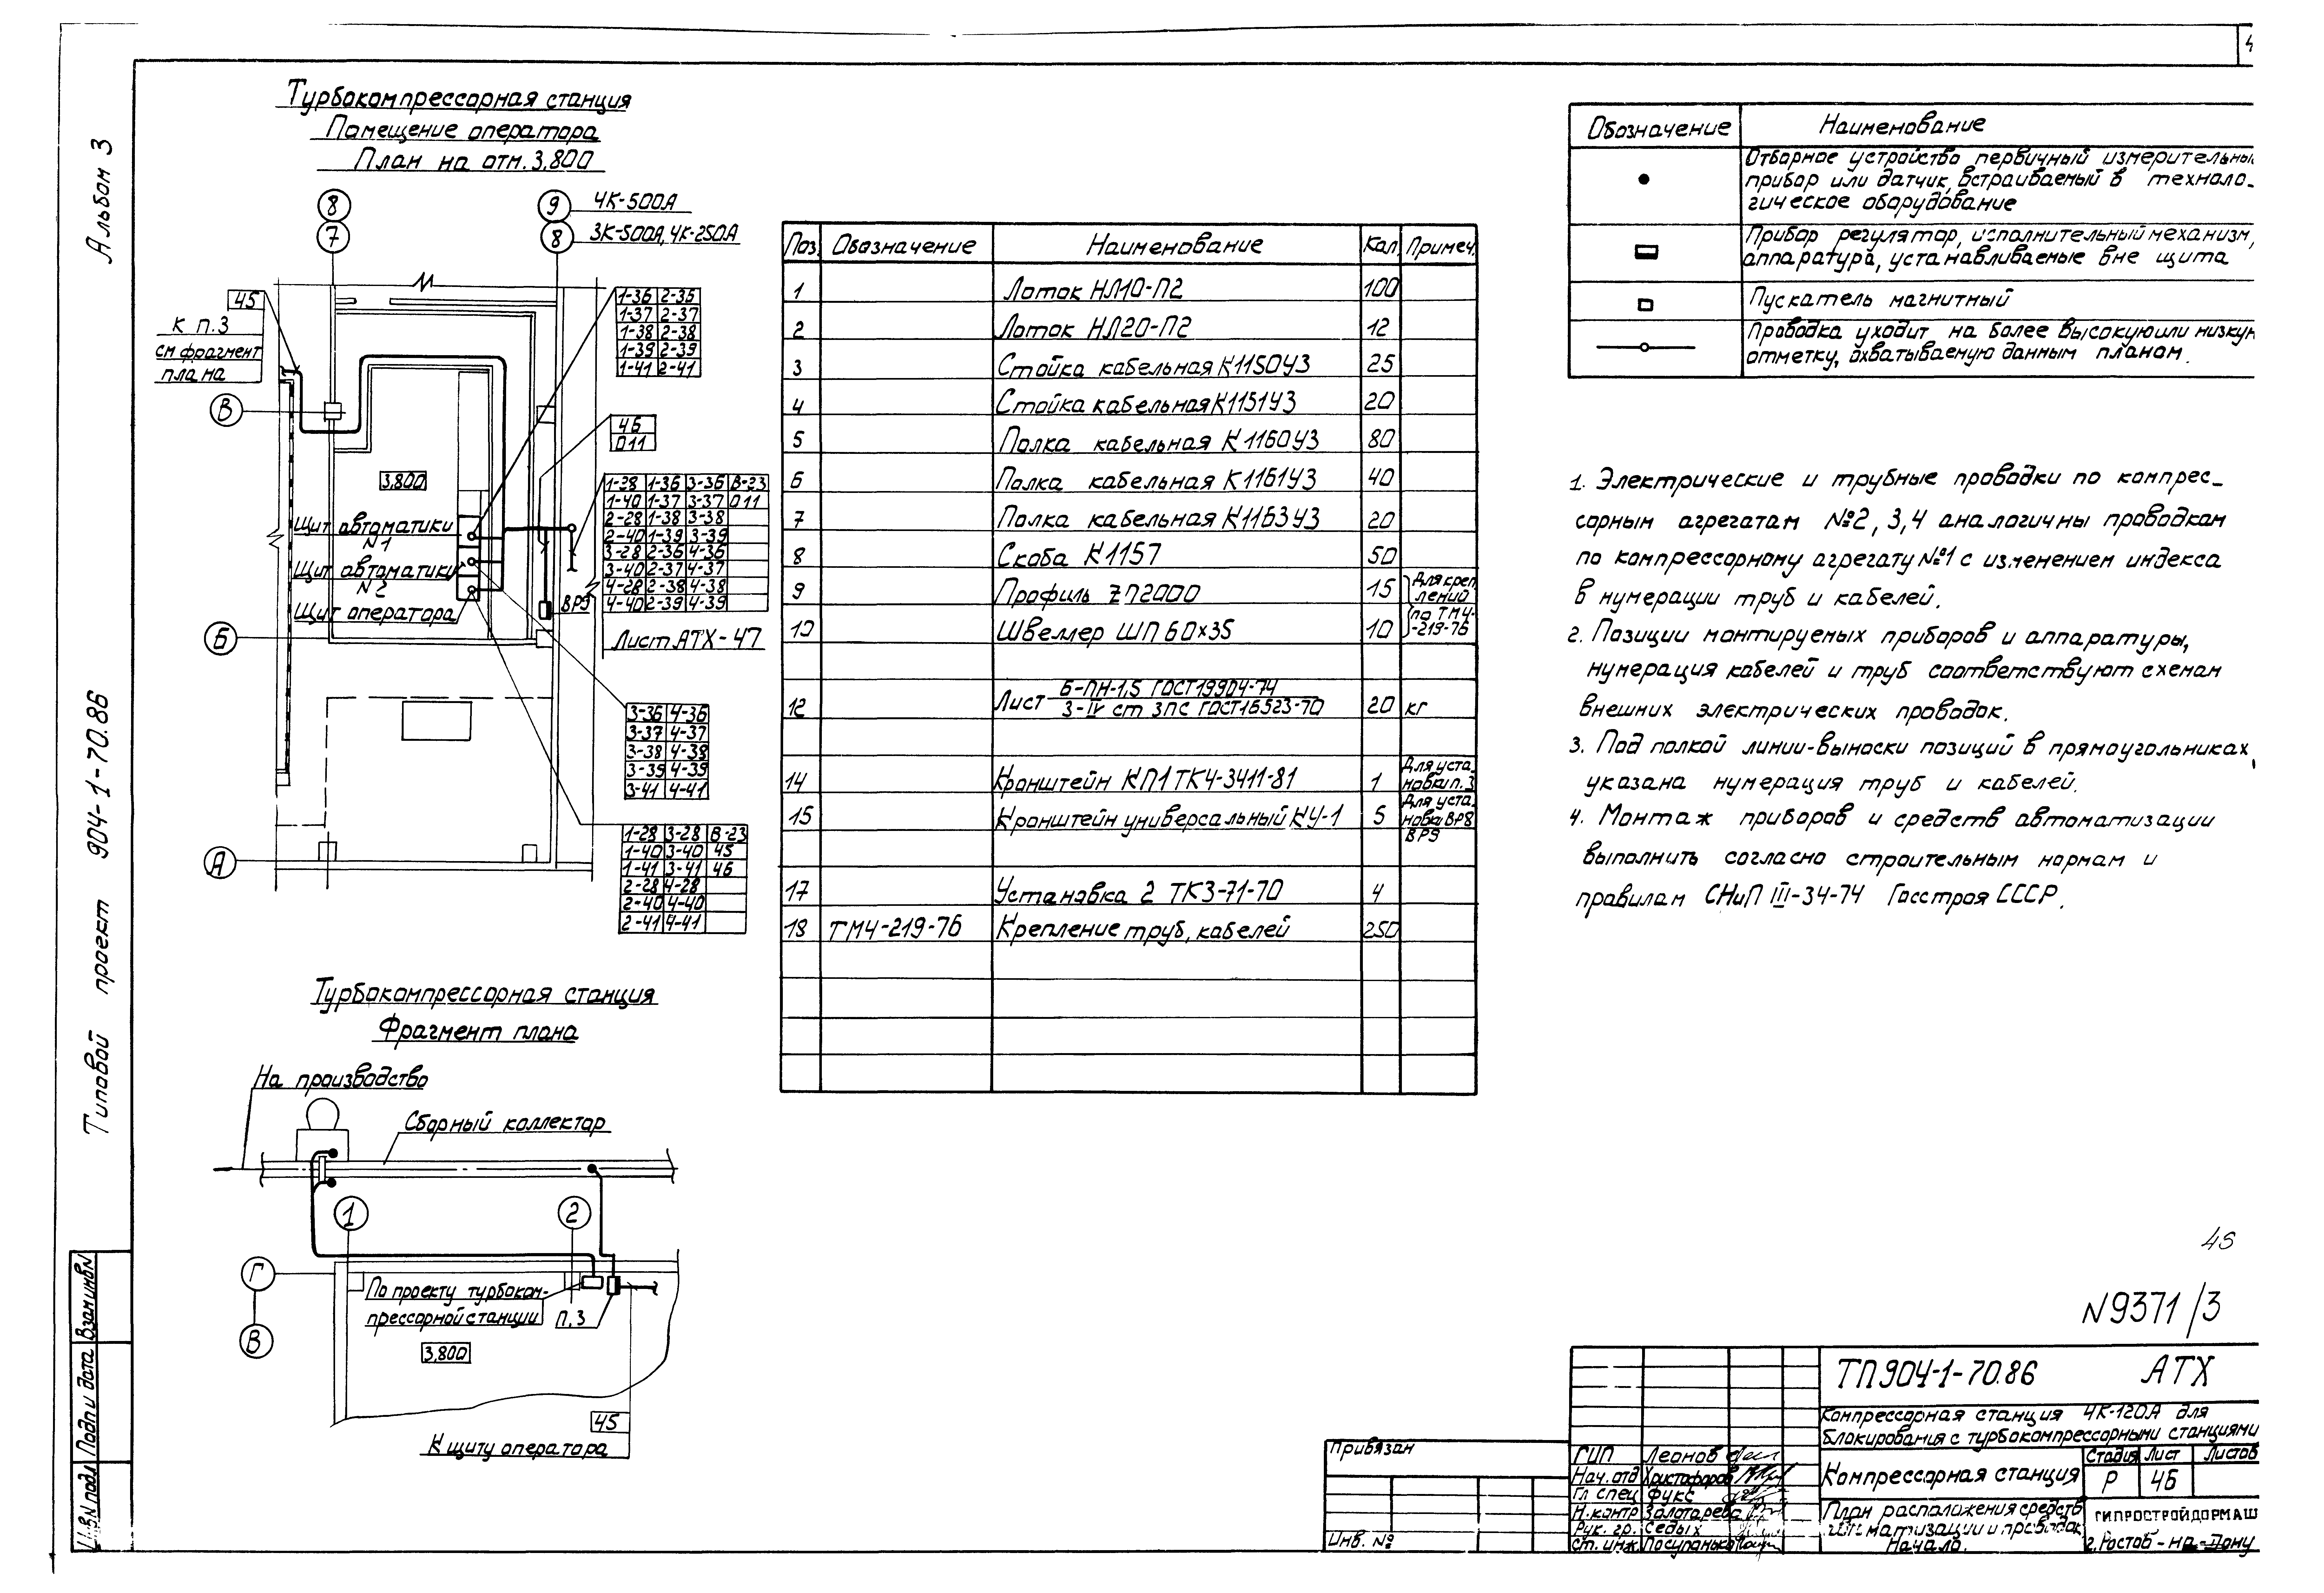 Альбом 3
Типовой проект 904-1-70.86
Турбокомпрессорная станция
Помещение оператора
План на отм. 3,800
8
7
9
8
4К-500А
3К-500А, 4К-250А
45
К п.3
см фрагмент
плана
В
Б
А
3,800
Щит автоматики
N1
Щит автоматики
N2
Щит оператора
1-36 2-36
1-37 2-37
1-38 2-38
1-39 2-39
1-41 2-41
46
011
1-28 1-36 3-36 В-23
1-40 1-37 3-37 011
2-28 1-38 3-38
2-40 1-39 3-39
3-28 2-36 4-36
3-40 2-37 4-37
4-28 2-38 4-38
4-40 2-39 4-39
ВР9
Лист АТХ-47
3-36 4-36
3-37 4-37
3-38 4-38
3-39 4-39
3-41 4-41
1-28 3-28 В-23
1-40 3-40 45
1-41 3-41 46
2-28 4-28
2-40 4-40
2-41 4-41
Турбокомпрессорная станция
Фрагмент плана
На производство
Сборный коллектор
1
2
Г
В
По проекту турбоком-
прессорной станции
п.3
3,800
45
К щиту оператора
Поз. Обозначение Наименование Кол. Примеч.
1 Лоток НЛ10-П2 100
2 Лоток НЛ20-П2 12
3 Стойка кабельная К1150У3 25
4 Стойка кабельная К1151У3 20
5 Полка кабельная К1160У3 80
6 Полка кабельная К1161У3 40
7 Полка кабельная К1163У3 20
8 Скоба К1157 50
9 Профиль ZП2000 15 Для креп
лений
10 Швеллер ШП 60х35 10 по ТМ4-
-219-76
12 Лист Б-ПН-1,5 ГОСТ19904-74
3-IV ст 3ПС ГОСТ16523-70 20 кг
14 Кронштейн КП1 ТК4-3411-81 1 Для уста-
новки п.3
15 Кронштейн универсальный КУ-1 5 Для уста-
новки ВР8
ВР9
17 Установка 2 ТК3-71-70 4
18 ТМ4-219-76 Крепление труб, кабелей 250
Обозначение Наименование
Отборное устройство первичный измерительны
прибор или датчик, встраиваемый в техноло-
гическое оборудование
Прибор регулятор, исполнительный механизм,
аппаратура, устанавливаемые вне щита
Пускатель магнитный
Проводка уходит на более высокую или низкую
отметку, охватываемую данным планом.
1. Электрические и трубные проводки по компрес-
сорным агрегатам №2, 3, 4 аналогичны проводкам
по компрессорному агрегату №1 с изменением индекса
в нумерации труб и кабелей.
2. Позиции монтируемых приборов и аппаратуры,
нумерация кабелей и труб соответствуют схемам
внешних электрических проводок.
3. Под полкой линии-выноски позиций в прямоугольниках,
указана нумерация труб и кабелей.
4. Монтаж приборов и средств автоматизации
выполнить согласно строительным нормам и
правилам СНиП III-34-74 Госстроя СССР.
45
N9371/3
ТП904-1-70.86 АТХ
Компрессорная станция 4К-120А для
блокирования с турбокомпрессорными станциями
Компрессорная станция
Стадия Лист Листов
Р 46
План расположения средств
автоматизации и проводок
Начало.
ГИПРОСТРОЙДОРМАШ
г. Ростов-на-Дону
Привязан
Инв. №
ГИП Леонов
Нач. отд Христофоров
Гл спец Фукс
Н.контр Золотарева
Рук. гр. Седых
Ст. инж. Посупонько
Взам инв N
Подп и дата
Инв. N подл